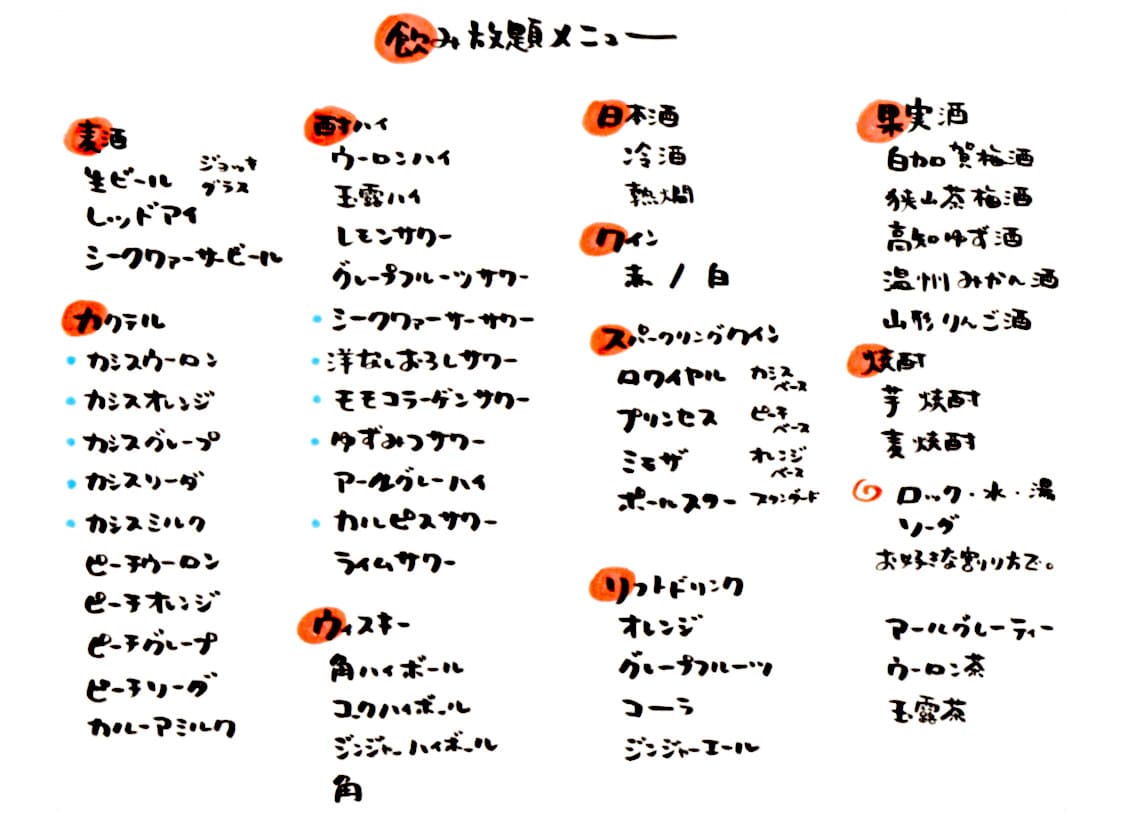 飲み放題メニュー
麦酒
生ビール ジョッキ グラス
レッドアイ
シークヮーサービール
カクテル
・カシスウーロン
・カシスオレンジ
・カシスグレープ
・カシスソーダ
・カシスミルク
ピーチウーロン
ピーチオレンジ
ピーチグレープ
ピーチソーダ
カルーアミルク
酎ハイ
ウーロンハイ
玉露ハイ
レモンサワー
グレープフルーツサワー
・シークヮーサーサワー
・洋なしおろしサワー
・モモコラーゲンサワー
・ゆずみつサワー
アールグレーハイ
・カルピスサワー
ライムサワー
ウィスキー
角ハイボール
コークハイボール
ジンジャーハイボール
角
日本酒
冷酒
熱燗
ワイン
赤 / 白
スパークリングワイン
ロワイヤル カシスベース
プリンセス ピーチベース
ミモザ オレンジベース
ポールスター スタンダード
ソフトドリンク
オレンジ
グレープフルーツ
コーラ
ジンジャーエール
果実酒
白加賀梅酒
狭山茶梅酒
高知ゆず酒
温州みかん酒
山形りんご酒
焼酎
芋焼酎
麦焼酎
ロック・水・湯
ソーダ
お好きな割り方で。
アールグレーティー
ウーロン茶
玉露茶